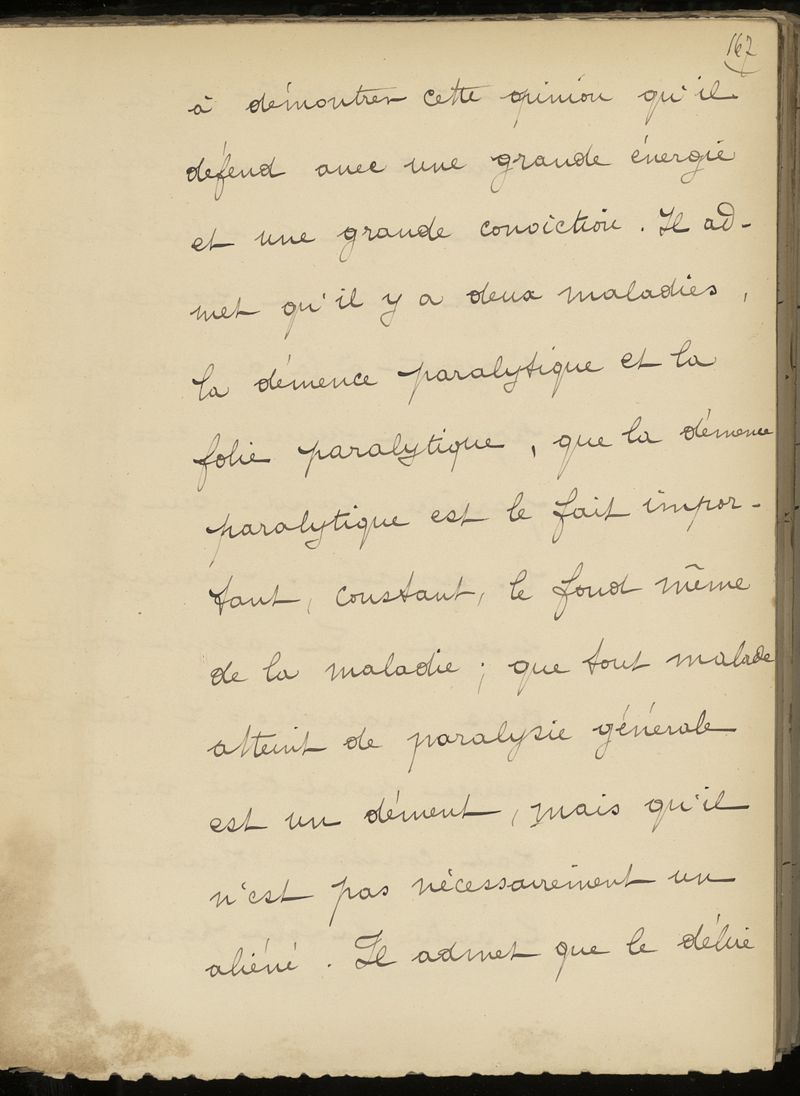 167
à démontrer cette opinion qu'il
défend avec une grande énergie
et une grande conviction. Il ad-
met qu'il y a deux maladies,
la démence paralytique et la
folie paralytique, que la démence
paralytique est le fait impor-
tant, constant, le fond même
de la maladie; que tout malade
atteint de paralysie générale
est un dément, mais qu'il
n'est pas nécessairement un
aliéné. Il admet que le délire